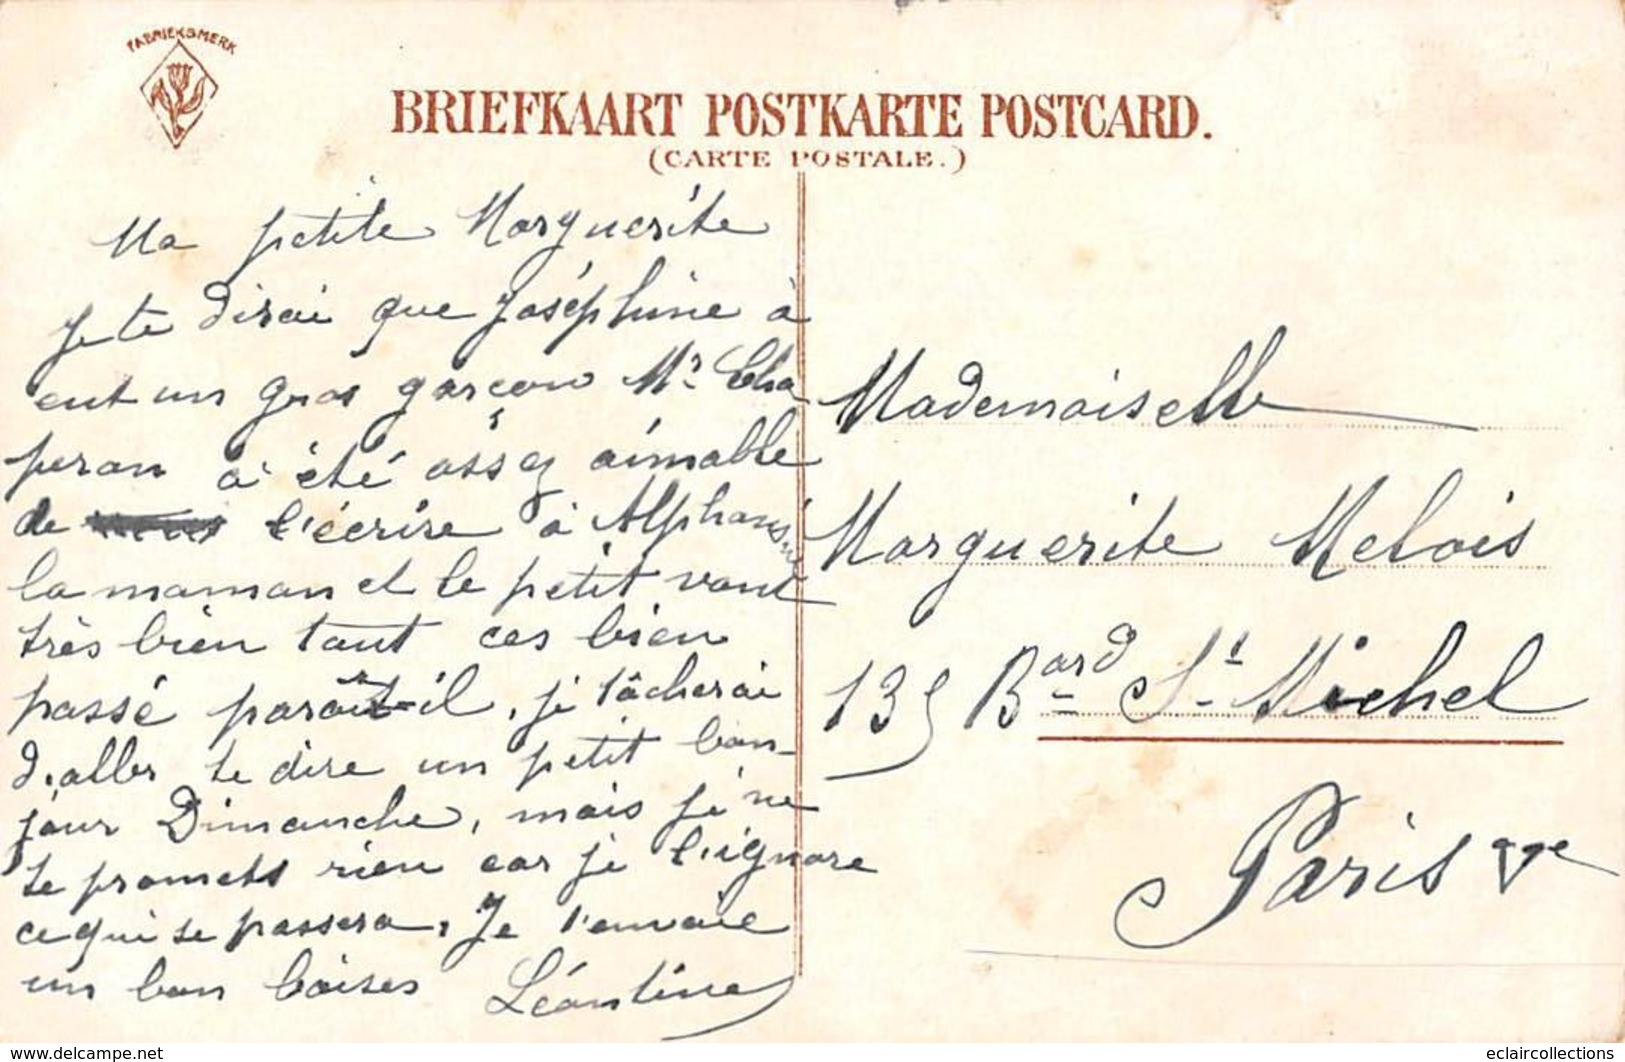 FABRIEKSMERK
BRIEFKAART POSTKARTE POSTCARD.
(CARTE POSTALE.)
Ma petite Marguerite
Je te dirai que Joséphine à
eut un gros garçon Mr Cha
peron à été assez aimable
de l'écrire à Alphonsine
la maman et le petit vont
très bien tout ces bien
passé paraît-il, je tâcherai
d'aller te dire un petit bon-
jour Dimanche, mais je ne
te promets rien car je l'ignore
ce qui se passera, Je t'envoie
un bon baises Léontine
Mademoiselle
Marguerite Melois
135 Bard St Michel
Paris Vme
www.delcampe.net
eclaircollections